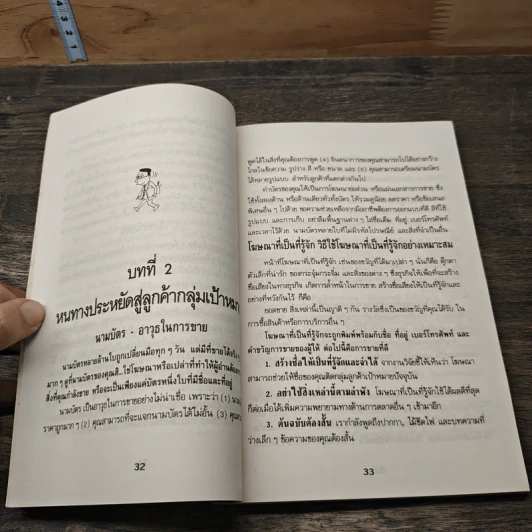 บทที่ 2
หนทางประหยัดสู่ลูกค้ากลุ่มเป้าหมา
นามบัตร - อาวุธในการขาย
นามบัตรหลายล้านใบถูกเปลี่ยนมือทุก ๆ วัน แต่มีที่ขายได้จริง
มาก ๆ ดูที่นามบัตรของคุณสิ..ใช่โฆษณาหรือเปล่าที่ทำให้ผู้อ่านต้อง
สิ่งที่คุณกำลังขาย หรือจะเป็นเพียงแค่บัตรหนึ่งใบที่มีชื่อและที่อยู่
นามบัตร เป็นอาวุธในการขายอย่างไม่น่าเชื่อ เพราะว่า (1)
ราคาถูกมาก ๆ (2) คุณสามารถที่จะแจกนามบัตรได้ไม่อั้น (3)
32
พูดได้ในสิ่งที่คุณต้องการพูด (4) จินตนาการของคุณสามารถไปได้อย่างกว้าง
ไกลในข้อความ รูปร่าง สี หรือ ขนาด และ (5) คุณสามารถเตรียมนามบัตร
ได้หลายรูปแบบ สำหรับลูกค้าที่แตกต่างกันไป
ทำบัตรของคุณให้เป็นการโฆษณาย่อส่วน หรือแผ่นเอกสารการขาย ซึ่ง
ใช้ทั้งสองด้าน หรือด้านเดียวทั่วทั้งบัตร ให้รวมดูน้อย ลดราคา หรือข้อเสนอ
พิเศษอื่น ๆ ไปด้วย
และเวลาไว้ด้วย
โฆษณาที่เป็นที่รู้จัก วิธีใช้โฆษณาที่เป็นที่รู้จักอย่างเหมาะสม
หน้าที่โฆษณาที่เป็นที่รู้จัก เช่นของขวัญที่ได้มาเปล่า ๆ นั้นก็คือ ตุ๊กตา
ตัวเล็กที่น่ารัก ของกระจุ๋มกระจิ๋ม และสิ่งของต่าง ๆ ซึ่งธุรกิจให้เพื่อที่จะสร้าง
ชื่อเสียงในทางธุรกิจ เกิดการล้ำหน้าในการขาย สร้างชื่อเสียงให้เป็นที่รู้จักและ
อย่างที่หวังกันไว้ ก็คือ
ยอดขาย สิ่งเหล่านี้เป็นญาติ ๆ กัน รางวัลซึ่งเป็นของขวัญที่คุณได้รับ ใน
การซื้อสินค้าหรือการบริการอื่น ๆ
โฆษณาที่เป็นที่รู้จักจะถูกพิมพ์พร้อมกับชื่อ ที่อยู่ เบอร์โทรศัพท์ และ
คำขวัญการขายของผู้ให้ ต่อไปนี้คือการขายที่ดี
1. สร้างชื่อให้เป็นที่รู้จักและจำได้ จากงานวิจัยชี้ให้เห็นว่า โฆษณา
สามารถช่วยให้ชื่อของคุณติดกลุ่มลูกค้าเป้าหมายปัจจุบัน
2. อย่าใช้สิ่งเหล่านี้ตามลำพัง โฆษณาที่เป็นที่รู้จักใช้ได้ผลดีที่สุด
ก็ต่อเมื่อได้เพิ่มความพยายามทางด้านการตลาดอื่น ๆ เข้ามาอีก
3. ต้นฉบับต้องสั้น เรากำลังพูดถึงปากกา, ไม้ขีดไฟ และบทความที่
ว่างเล็ก ๆ ข้อความของคุณต้องสั้น
33